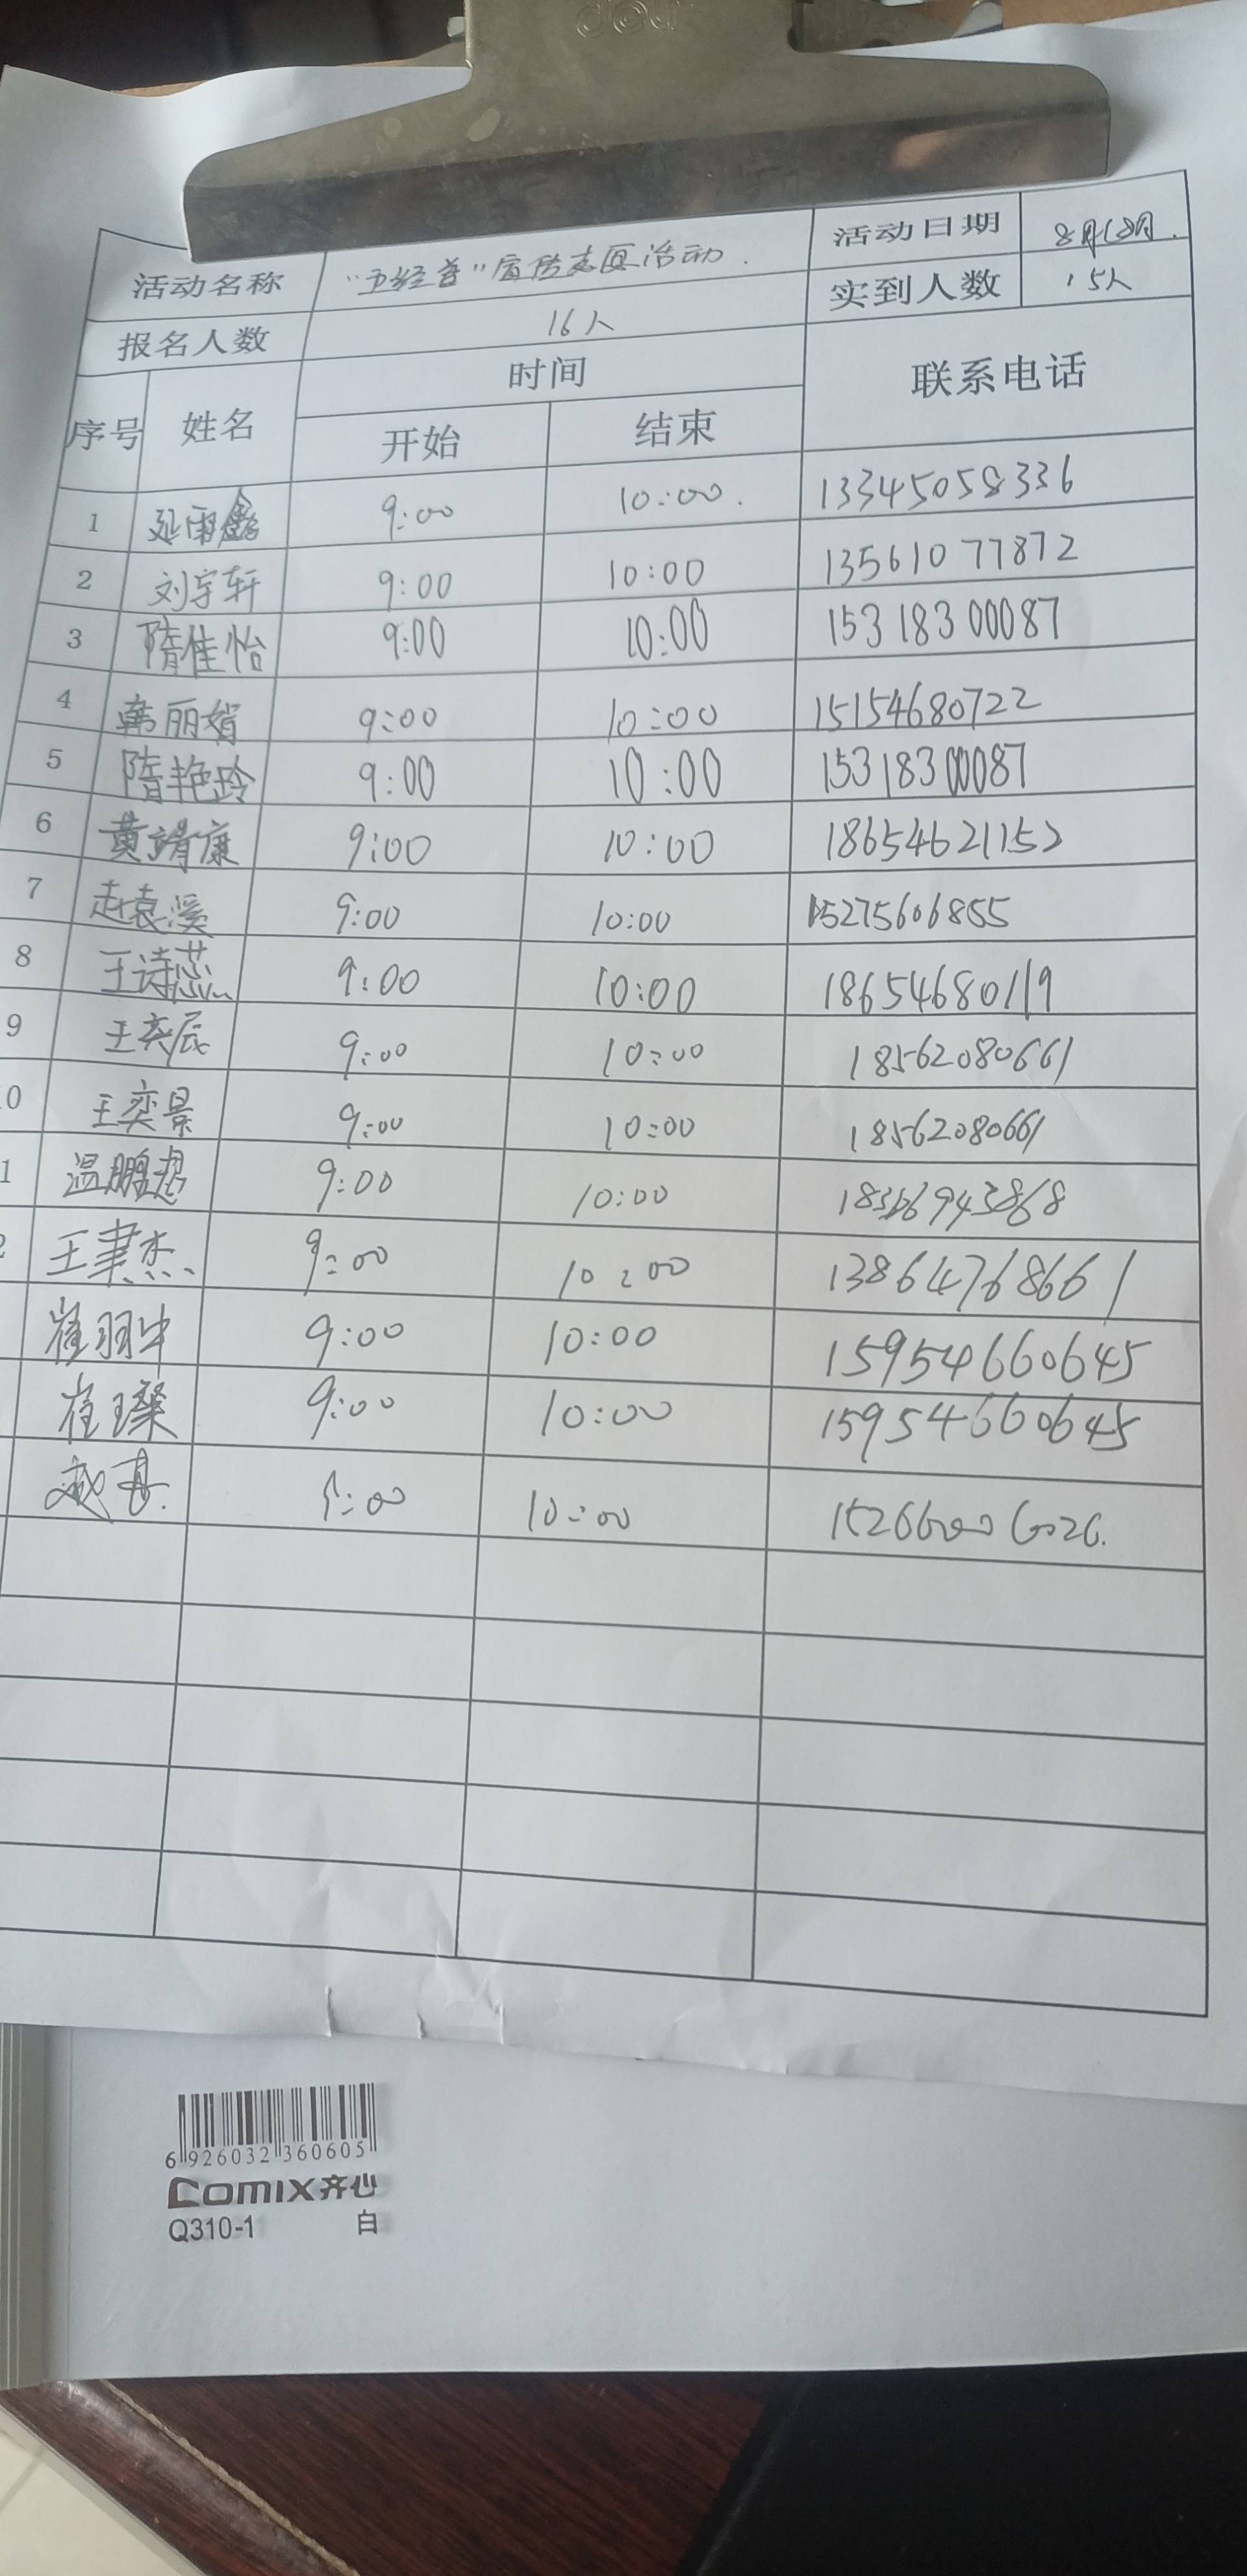 deli
活动名称 "五经普"宣传志愿活动. 活动日期 8月18日.
报名人数 16人 实到人数 15人
序号 姓名 时间 联系电话
开始 结束
1 延雨鑫 9:00 10:00. 13345058336
2 刘宇轩 9:00 10:00 13561077872
3 隋佳怡 9:00 10:00 15318300087
4 韩丽娟 9:00 10:00 15154680722
5 隋艳玲 9:00 10:00 15318300087
6 黄靖康 9:00 10:00 18654621152
7 赵袁溪 9:00 10:00 15275606855
8 王诗蕊 9:00 10:00 18654680119
9 王奕辰 9:00 10:00 18562080661
0 王奕景 9:00 10:00 18562080661
1 温鹏 9:00 10:00
2 王 杰 9:00 10:00 13864768661
崔羽 9:00 10:00 15954660645
崔璨 9:00 10:00 15954660645
9:00 10:00
6 926032 360605
Comix 齐心
Q310-1 白